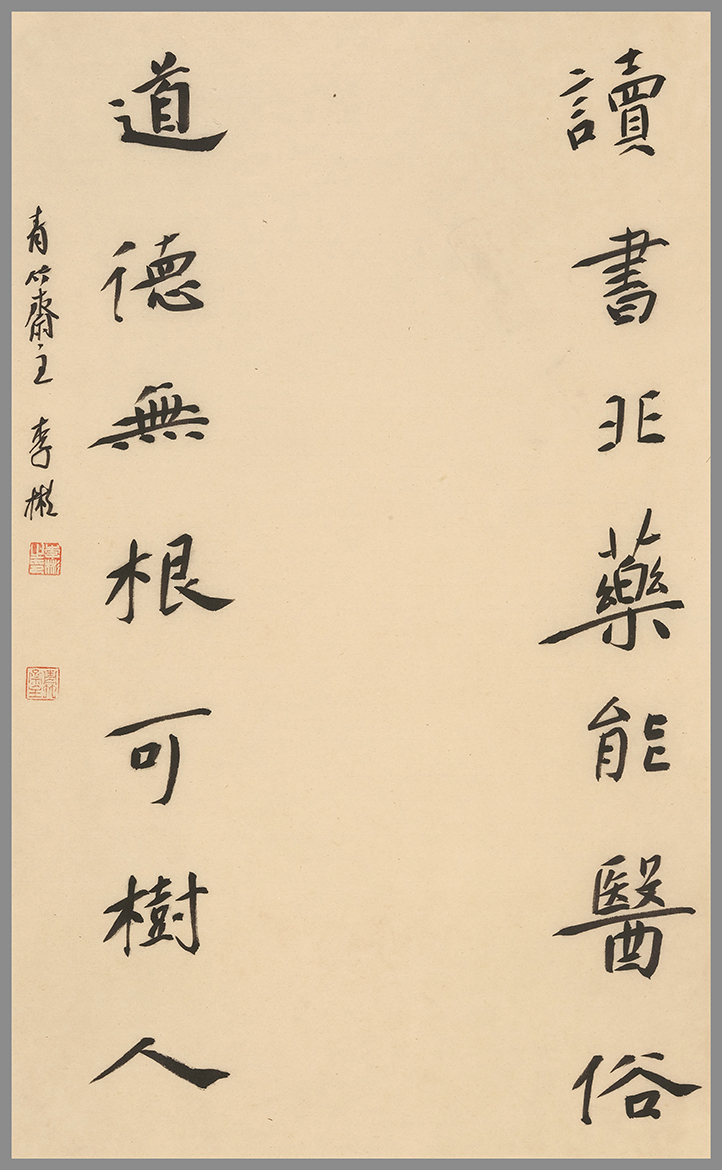 讀書非藥能醫俗
道德無根可樹人
青竹齋主 李彬